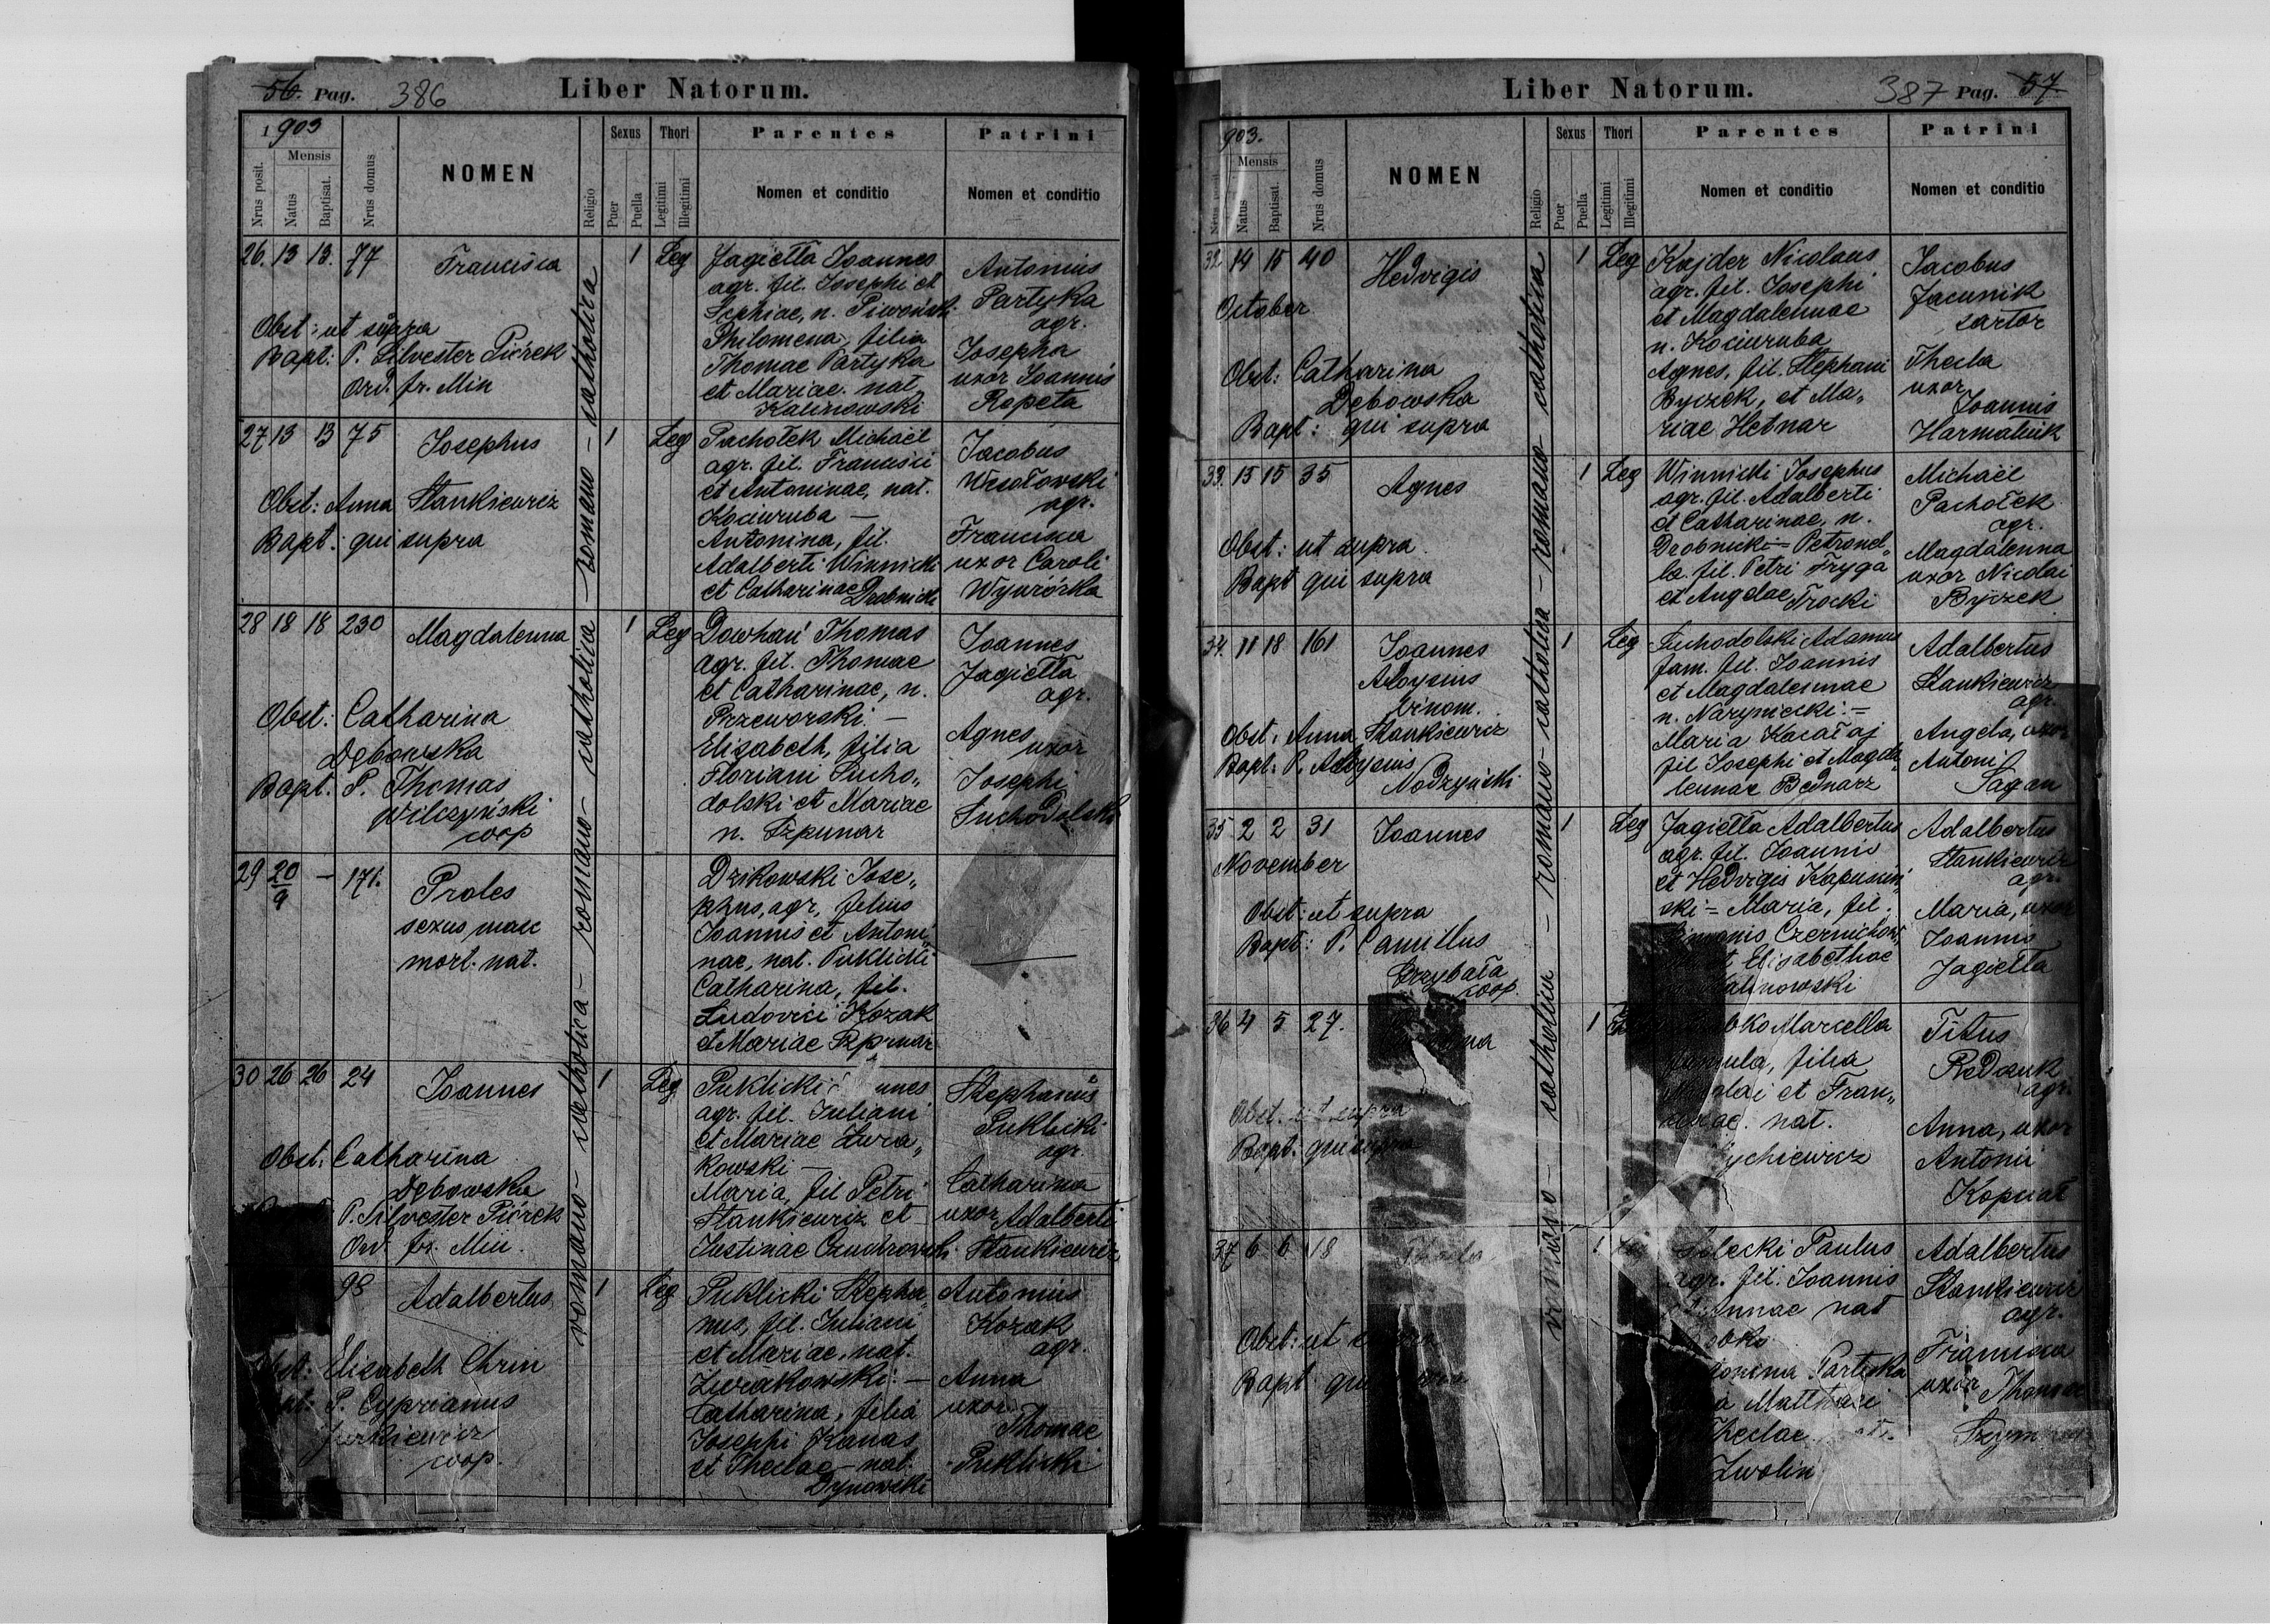 56. Pag. 386 Liber Natorum.
1903
Mensis
Nrus posit.
Natus
Baptisat.
Nrus domus
NOMEN
Religio
Sexus
Puer
Puella
Thori
Legitimi
Illegitimi
Parentes
Nomen et conditio
Patrini
Nomen et conditio
romano - catholica - romano - catholica - romano - catholica - romano - catholica
26. 13 13. 77 Francisca 1 Leg
Obst: ut supra
Bapt: P. Silvester Piórek
Ord. fr. Min
Jagiełła Ioannes
agr. fil. Iosephi et
Sophiae, n. Piwoński
Philomena, filia
Thomae Partyka
et Mariae nat
Kalinowski
Antonius
Partyka
agr.
Iosepha
uxor Ioannis
Repeta
27 13 13 75 Iosephus 1 Leg
Obst: Anna Stankiewicz
Bapt: qui supra
Pachołek Michaël
agr. fil. Francisci
et Antoninae, nat.
Kociuruba —
Antonina, fil.
Adalberti Winnicki
et Catharinae Drobnicki
Iacobus
Wesołowski
agr.
Francisca
uxor Caroli
Wywiórka
28 18 18 230 Magdalenna 1 Leg
Obst: Catharina
Dębowska
Bapt. P. Thomas
Wilczyński
coop
Dowhań Thomas
agr. fil. Thomae
et Catharinae, n.
Przeworski —
Elisabeth, filia
Floriani Sucho„
dolski et Mariae
n. Szpunar
Ioannes
Jagiełła
agr.
Agnes
uxor
Iosephi
Suchodolski
29 20/9 — 171. Proles
sexus masc
mort. nat.
Dzikowski Iose„
phus, agr, filius
Ioannis et Antoni„
nae, nat. Puklicki
Catharina, fil.
Ludovici Kozak
et Mariae Szpunar
30 26 26 24 Ioannes 1 Leg
Obst: Catharina
Dębowska
P. Silvester Piórek
Ord fr. Min.
Puklicki
agr. fil. Iuliani
et Mariae Żura„
kowski —
Maria, fil Petri
Stankiewicz et
Iustinae
Stephanus
Puklicki
agr.
Catharina
uxor Adalberti
Stankiewicz
98 Adalbertus 1 Leg
Elisabeth Chrin
P. Cyprianus
Jurkiewicz
coop.
Puklicki Stepha„
nus, fil. Iuliani
et Mariae, nat.
Żurakowski: —
Catharina, filia
Iosephi Kanas
et Theclae — nat.
Dynowski
Antonius
Kozak
agr.
Anna
uxor
Thomae
Puklicki
Liber Natorum. 387 Pag. 57
903.
Mensis
Nrus posit.
Natus
Baptisat.
Nrus domus
NOMEN
Religio
Sexus
Puer
Puella
Thori
Legitimi
Illegitimi
Parentes
Nomen et conditio
Patrini
Nomen et conditio
romano - catholica - romano - catholica - romano - catholica - romano - catholica
32 14 15 40 Hedvigis 1 Leg
October
Obst: Catharina
Dębowska
Bapt: qui supra
Kajder Nicolaus
agr. fil. Iosephi
et Magdalennae
n. Kociuruba
Agnes, fil. Stephani
Byczek, et Ma„
riae Hetnar
Iacobus
Jacunik
sartor
Thecla
uxor
Ioannis
Harmatiuk
33. 15 15 35 Agnes 1 Leg
Obst: ut supra
Bapt qui supra
Winnicki Iosephus
agr. fil. Adalberti
et Catharinae, n.
Drobnicki = Petronel„
la. fil. Petri Fryga
et Angelae Trocki
Michaël
Pachołek
agr.
Magdalenna
uxor Nicolai
Byczek
34. 11 18 161 Ioannes 1 Leg
Aloysius
binom.
Obst: Anna Stankiewicz
Bapt: P. Aloysius
Nodzyński
Suchodolski Adamus
fam. fil. Ioannis
et Magdalennae
n. Naryniecki: =
Maria Kacałaj
fil Iosephi et Magda„
lennae Bednarz
Adalbertus
Stankiewicz
agr.
Angela, uxor
Antoni
Sagan
35 2 2 31 Ioannes 1 Leg
November
Obst: ut supra
Bapt: P. Camillus
coop.
Jagiełła Adalbertus
agr. fil. Ioannis
et Hedvigis Kapuściń„
ski = Maria, fil.
Elisabethae
Kalinowski
Adalbertus
Stankiewicz
agr.
Maria, uxor
Ioannis
Jagiełła
36 4 5 27. 1
Obst. ut supra
Bapt. qui supra
Marcella
famula, filia
et Fran„
nat.
Titus
Redczuk
agr.
Anna, uxor
Antonii
Kopciał
37 6 6 18 Thecla 1
Obst: ut
Bapt qui
Paulus
agr. fil: Ioannis
Annae nat
Partyka
Matthaei
Theclae
Zwolin
Adalbertus
Stankiewicz
agr.
Francisca
uxor Thomae